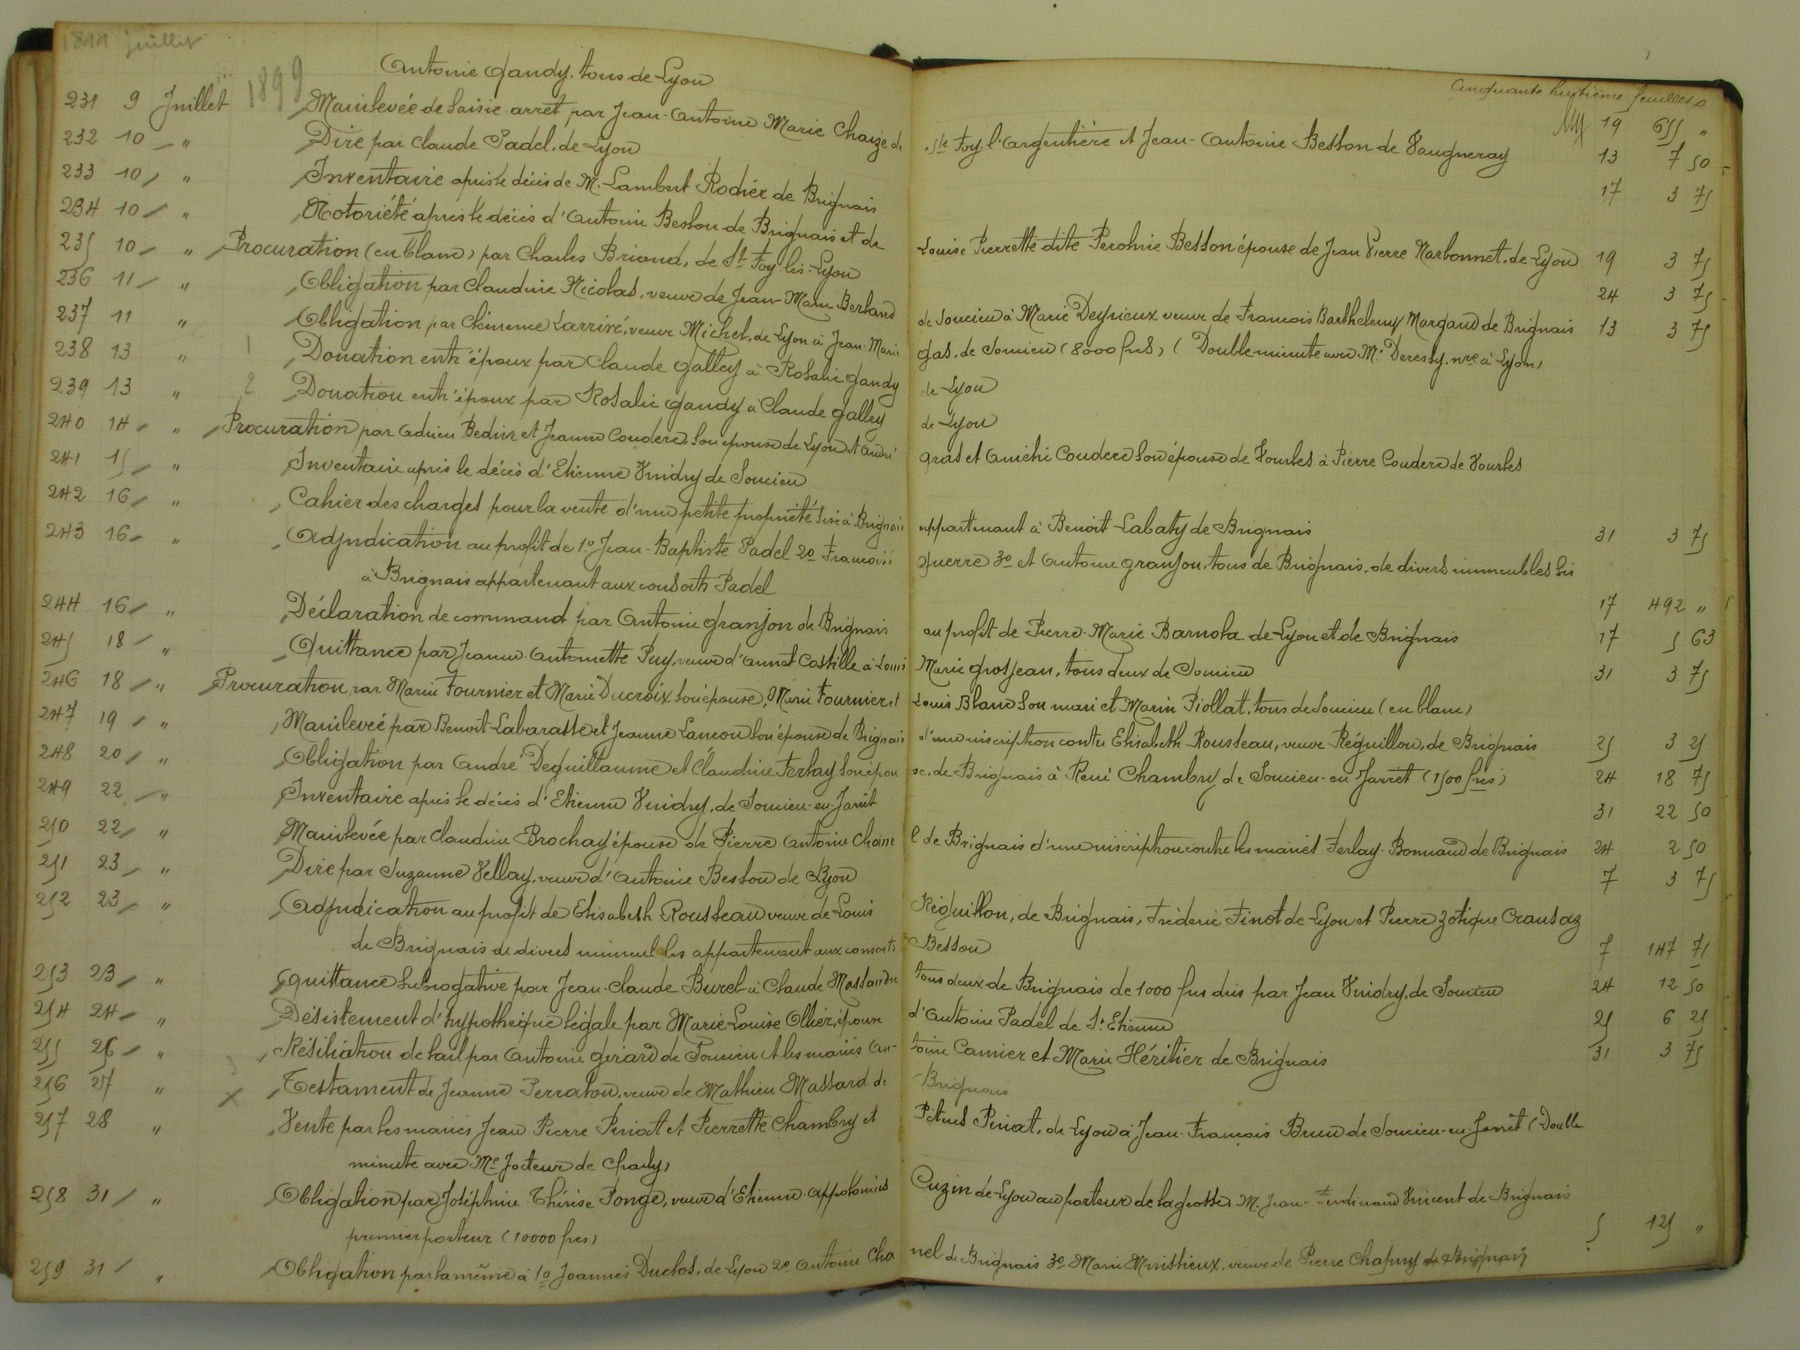 1899 juillet
1899
Cinquante huitième feuillet
Antonie Gandy. tous de Lyon
231 9 Juillet Mainlevée de saisie arret par Jean-Antoine Marie Chaize de Ste Foy l'Argentière et Jean-Antoine Besson de Vaugneray 19 655 "
232 10 " Dire par Claude Padel, de Lyon 13 7 50
233 10 " Inventaire après le décès de M. Lambert Rodier de Brignais 17 3 75
234 10 " Notoriété après le décès d'Antoine Besson de Brignais et de Louise Pierrette dite Peronnie Besson épouse de Jean Pierre Narbonnet, de Lyon 19 3 75
235 10 " Procuration (en blanc) par Charles Briand, de St Foy-lès-Lyon 24 3 75
236 11 " Obligation par Claudine Nicolas, veuve de Jean-Marie Berland de Soucieu à Marie Deyrieux veuve de Francois Barthelemy Margand de Brignais 13 3 75
237 11 " Obligation par Clémence Larrivé, veuve Michel, de Lyon à Jean-Marie Gas, de Soucieu (8000 frs) (Double minute avec Me Deresty, nre à Lyon)
238 13 " 1 Donation entr'époux par Claude Galley à Rosalie Gandy de Lyon
239 13 " 2 Donation entr'époux par Rosalie Gandy à Claude Galley de Lyon
240 14 " Procuration par Adrien Bedin et Jeanne Couderc son épouse de Lyon et André Gras et Annette Couderc son épouse de Vourles à Pierre Couderc de Vourles
241 15 " Inventaire après le décès d'Etienne Vindry de Soucieu
242 16 " Cahier des charges pour la vente d'une petite propriété sise à Brignais appartenant à Benoit Labaty de Brignais 31 3 75
243 16 " Adjudication au profit de 1º Jean-Baptiste Padel 2º Francois Guerre 3º et Antoine Granjon, tous de Brignais, de divers immeubles sis
à Brignais appartenant aux consorts Padel 17 492 "
244 16 " Déclaration de command par Antoine Granjon de Brignais au profit de Pierre-Marie Barnola de Lyon et de Brignais 17 5 63
245 18 " Quittance par Jeanne-Antoinette Puy, veuve d'Annet Costille à Louis Marie Grosjean, tous deux de Soucieu 31 3 75
246 18 " Procuration par Marie Fournier et Marie Ducroix son épouse, Marie Fournier et Louis Blanc son mari et Marin Piollat, tous de Soucieu (en blanc)
247 19 " Mainlevée par Benoit Labarasse et Jeanne Lancon son épouse de Brignais d'une inscription contre Elisabeth Rousseau, veuve Réguillon, de Brignais 25 3 25
248 20 " Obligation par André Deguillaume et Claudine Ferlay son épouse, de Brignais à René Chambry de Soucieu-en-Jarret (1500 frs) 24 18 75
249 22 " Inventaire après le décès d'Etienne Vindry, de Soucieu-en-Jarrêt 31 22 50
250 22 " Mainlevée par Claudine Brochay épouse de Pierre-Antoine Chanel de Brignais d'une inscription contre les mariés Ferlay-Bonnand de Brignais 24 2 50
251 23 " Dire par Suzanne Vellay, veuve d'Antoine Besson de Lyon 7 3 75
252 23 " Adjudication au profit de Elisabeth Rousseau veuve de Louis Réguillon, de Brignais, Frédéric Finot de Lyon et Pierre Zotique Crausaz
de Brignais de divers immeubles appartenant aux consorts Besson 7 147 71
253 23 " Quittance subrogative par Jean-Claude Burel à Claude Massardre tous deux de Brignais de 1000 frs dus par Jean Vindry, de Soucieu 24 12 50
254 24 " Désistement d'hypothèque légale par Marie-Louise Ollier, épouse d'Antoine Padel de St Etienne 25 6 25
255 26 " Résiliation de bail par Antoine Girard de Soucieu et les mariés Antoine Camier et Marie Héritier de Brignais 31 3 75
256 27 " 3 x Testament de Jeanne Perraton, veuve de Mathieu Massard de Brignais
257 28 " Vente par les mariés Jean Pierre Piniat et Pierrette Chambry et Pétrus Piniat, de Lyon à Jean-François Brun de Soucieu-en-Jarrêt (Double
minute avec Me Jocteur de Charly)
258 31 " Obligation par Joséphine-Thérèse Ponge, veuve d'Etienne-Appolonius Cuzin de Lyon au porteur de la grosse M. Jean-Ferdinand Vincent de Brignais
premier porteur (10000 frs) 5 125 "
259 31 " Obligation par la même à 1º Joannès Duclos, de Lyon 2º Antoine Chanel de Brignais 3º Marie Mistieux, veuve de Pierre Chapuy de Brignais